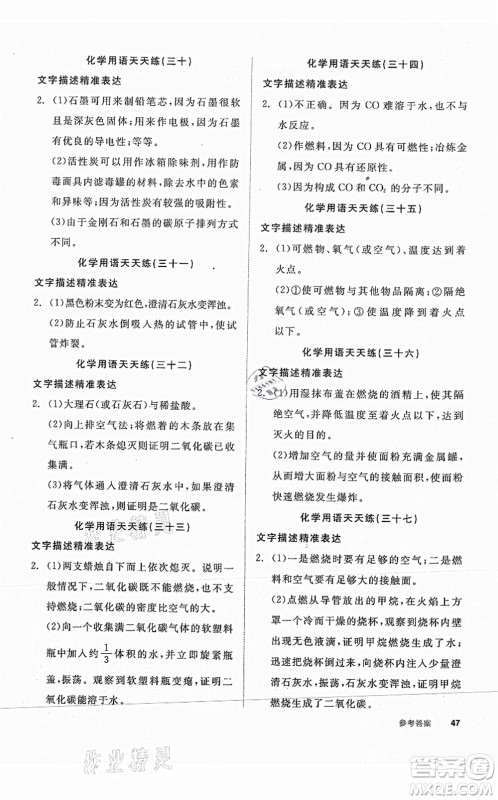 化学用语天天练(三十)
文字描述精准表达
2. (1)石墨可用来制铅笔芯，因为石墨很软
且是深灰色固体。用来作电极，因为石墨
有优良的导电性；等等。
(2)活性炭可以用作冰箱除味剂，还可用
于防毒面具内滤毒罐的材料，水中的色素
和异味等。因为活性炭具有疏松多孔的
结构，吸附性很强。
(3)由于金刚石和石墨的碳原子排列方式
不同。
化学用语天天练(三十一)
文字描述精准表达
2. (1)黑色粉末变为红色，澄清石灰水变浑浊。
(2)防止石灰水倒吸入热的试管中，使
试管炸裂。
化学用语天天练(三十二)
文字描述精准表达
2. (1)大理石(或石灰石)与稀盐酸。
(2)用向上排空气法，将燃着的木条放在集
气瓶口，若木条熄灭，则证明二氧化碳已
集满。
(3)将气体通入澄清石灰水中，若澄清石灰
水变浑浊，则证明是二氧化碳。
化学用语天天练(三十三)
文字描述精准表达
2. (1)两支蜡烛自下而上依次熄灭。说明一
般情况下，二氧化碳不能燃烧，也不支持
燃烧。密度比空气大。
(2)向一个收集满二氧化碳气体的软塑料
瓶中加入约1/3体积的水，立即旋紧瓶盖，
振荡。观察到软塑料瓶变瘪，则证明二
氧化碳能溶于水。
化学用语天天练(三十四)
文字描述精准表达
2. (1)不正确。因为 CO 难溶于水，也不与
水反应。
(2)作燃料，因为 CO 具有可燃性；冶炼金
属，因为 CO 具有还原性。
(3)因为构成 CO 和 CO₂ 的分子不同。
化学用语天天练(三十五)
文字描述精准表达
2. (1)可燃物、氧气(或空气)、温度达到着
火点。
(2)①使可燃物与其他物品隔离；②隔绝
氧气(或空气)；③使温度降到着火点以
下。
化学用语天天练(三十六)
文字描述精准表达
2. (1)用湿抹布盖在燃烧的酒精上，使其隔
绝空气，并使温度降低到着火点以下，达到
灭火的目的。
(2)增加空气，使面粉充满金属罐，从而
增大面粉与空气的接触面积。点燃后面粉
快速燃烧发生爆炸。
化学用语天天练(三十七)
文字描述精准表达
2. (1)一是燃烧时要有足够的空气；二是燃
料与空气要有足够大的接触面。
(2)点燃从导管放出的甲烷，在火焰上方
罩一个冷而干燥的烧杯，若烧杯内壁出现
无色液滴，证明甲烷燃烧生成了水；迅速
把烧杯倒过来，向烧杯内注入少量澄清石
灰水，振荡，石灰水变浑浊，证明甲烷燃
烧生成了二氧化碳。(或把烧杯取下来，
迅速把烧杯倒过来，向烧杯内注入少量澄
清石灰水，振荡，石灰水变浑浊，证明甲
烷燃烧生成了二氧化碳。)
参考答案 47
作业精灵
作业精灵